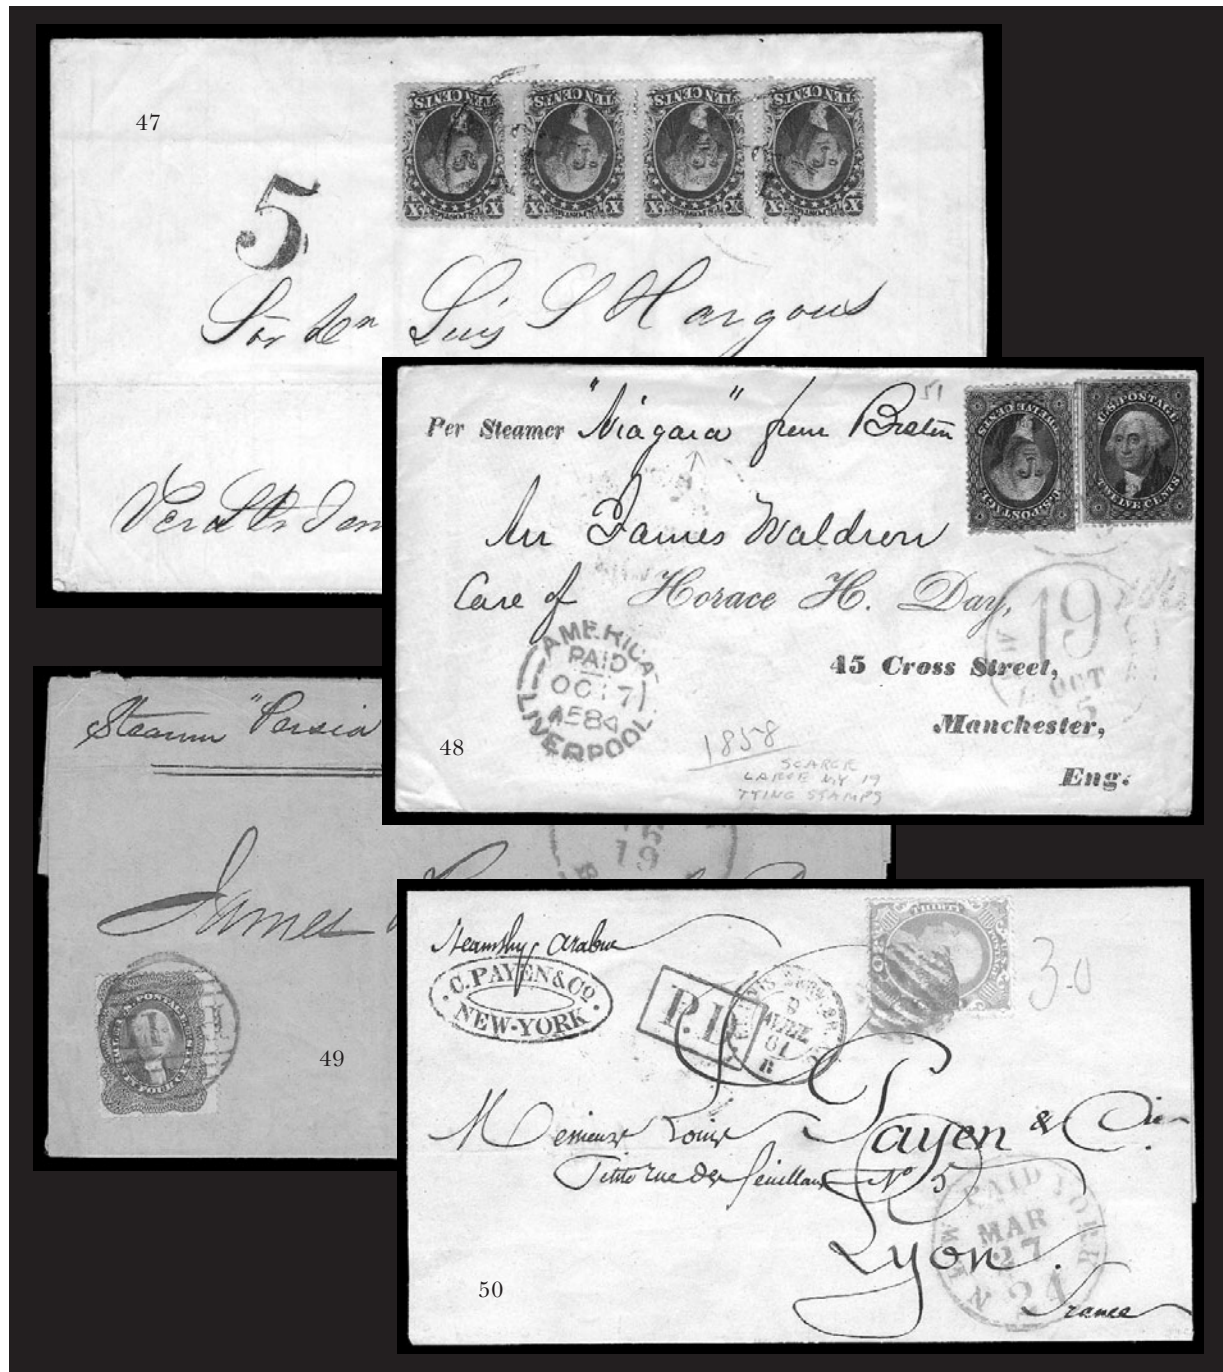 47
TEN CENTS TEN CENTS TEN CENTS TEN CENTS
X X X X X X X X
5
Sor Dn Luis S Hargous
Per Steamer "Niagara" from Boston
51
U.S. POSTAGE
TWELVE CENTS
U.S. POSTAGE
TWELVE CENTS
Mr James Waldron
Care of Horace H. Day,
45 Cross Street,
Manchester,
Eng.
AMERICA
PAID
OC 17
A58
LIVERPOOL
19
OCT
5
48
1858
SCARCE
LARGE N.Y. 19
TYING STAMPS
Steamer "Persia
James
19
49
Steamship Arabia
C. PAYEN & CO.
NEW-YORK
P.D.
THIRTY
30
Messieurs Louis Payen & Cie
Petite rue des feuillans No 5
Lyon.
France
NEW YORK
PAID
MAR
27
24
50